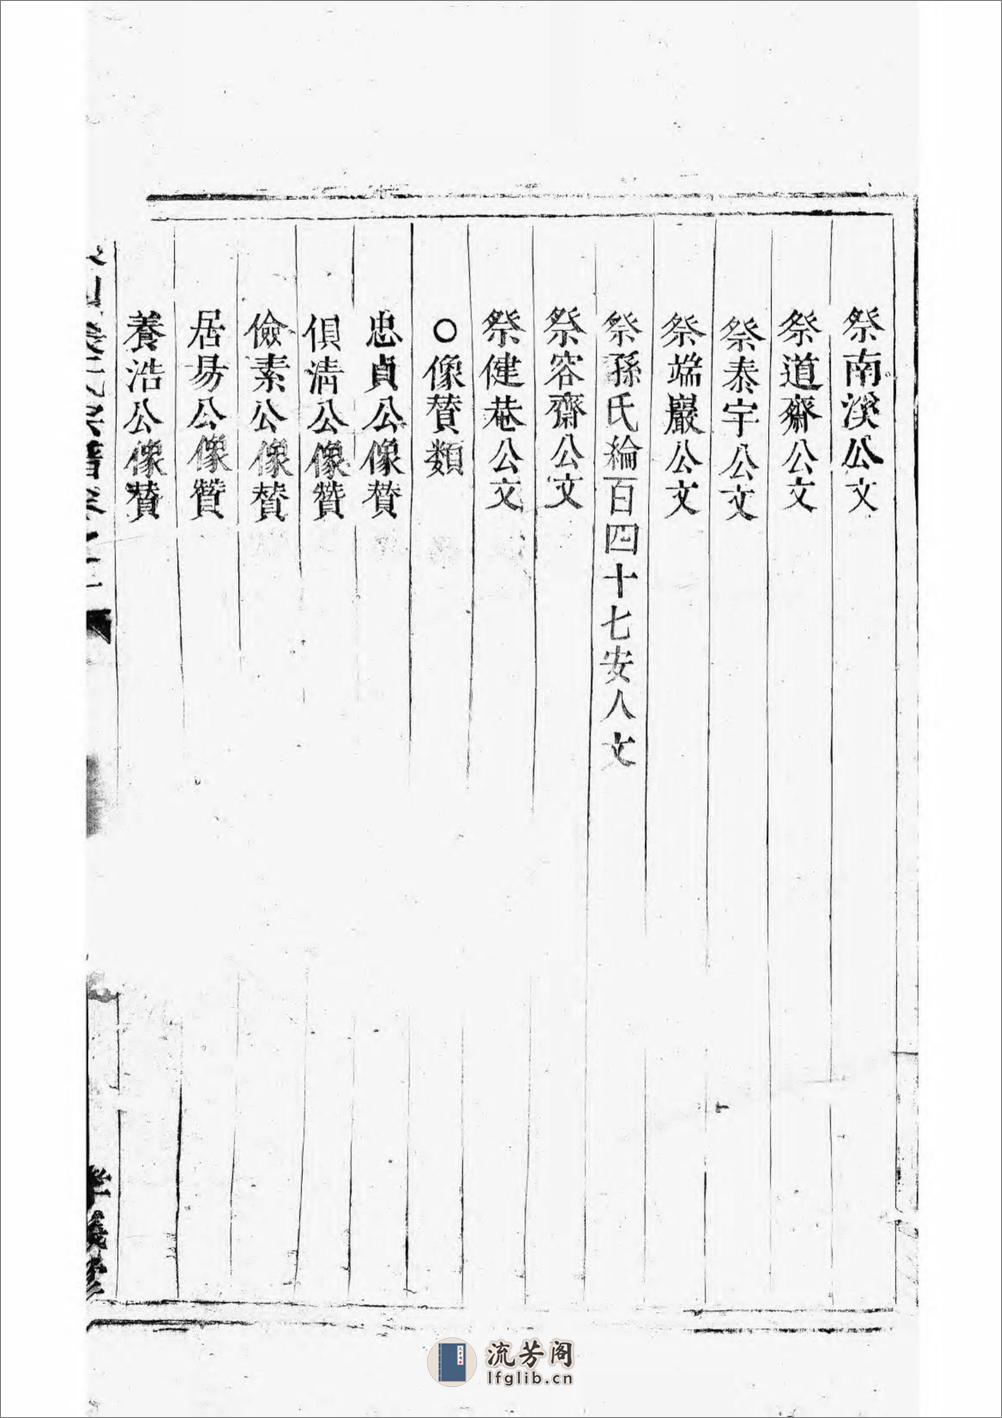 祭南溪公文
祭道齋公文
祭泰宇公文
祭端巖公文
祭孫氏綸百四十七安人文
祭容齋公文
祭健菴公文
○像贊類
忠貞公像贊
俱清公像贊
儉素公像贊
居易公像贊
養浩公像贊
氏宗譜卷之
孝義堂
流芳阁
lfglib.cn